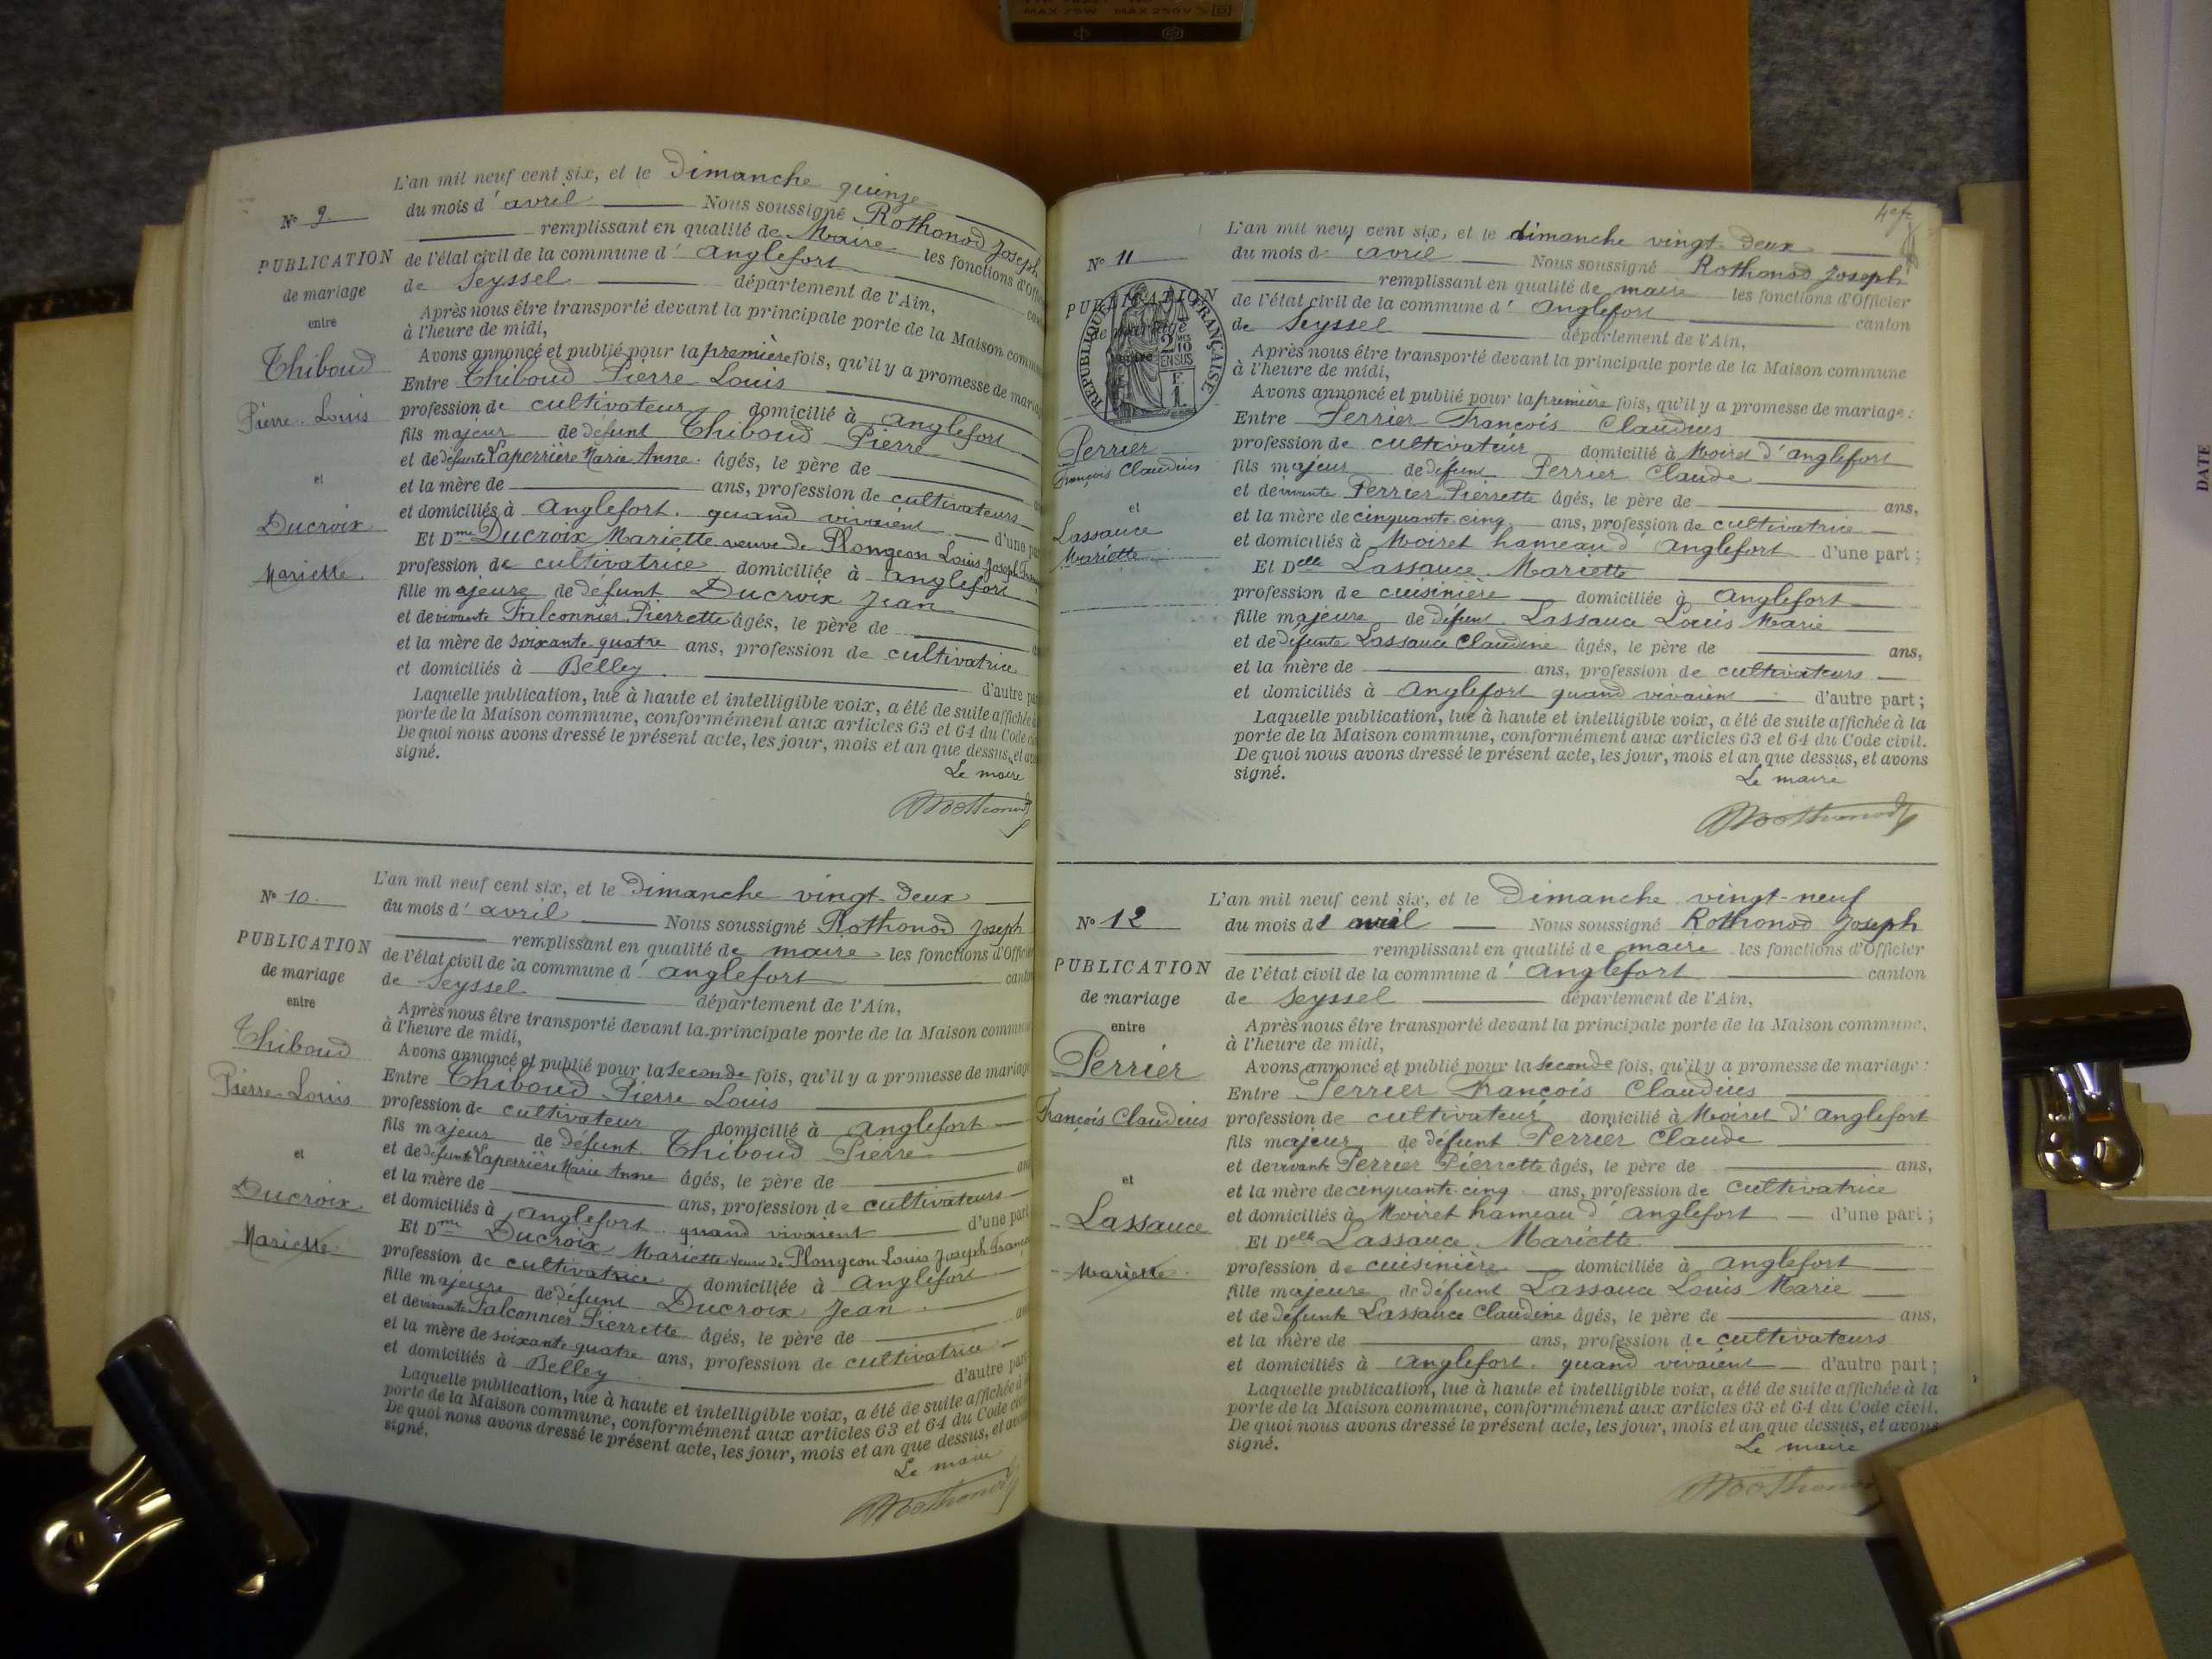 MAX 75W MAX 250V
L'an mil neuf cent six, et le Dimanche quinze
N° 9.
du mois d' avril Nous soussigné Rothonod Joseph
remplissant en qualité de Maire les fonctions d'Offi
PUBLICATION
de mariage
entre
Thiboud
Pierre Louis
et
Ducroix
Mariette
de l'état civil de la commune d' Anglefort can
de Seyssel département de l'Ain,
Après nous être transporté devant la principale porte de la Maison commu
à l'heure de midi,
Avons annoncé et publié pour la première fois, qu'il y a promesse de maria
Entre Thiboud Pierre Louis
profession de cultivateur domicilié à Anglefort
fils majeur de défunt Thiboud Pierre
et de défunte Laperrière Marie Anne. âgés, le père de
et la mère de ans, profession de cultivateurs
et domiciliés à Anglefort. quand vivaient d'une pa
Et Dme Ducroix Mariette veuve de Plongeon Louis Joseph Fran
profession de cultivatrice domiciliée à Anglefort
fille majeure de défunt Ducroix Jean
et de vivante Falconnier Pierrette âgés, le père de
et la mère de soixante quatre ans, profession de cultivatrice
et domiciliés à Belley. d'autre pa
Laquelle publication, lue à haute et intelligible voix, a été de suite affichée à
porte de la Maison commune, conformément aux articles 63 et 64 du Code ci
De quoi nous avons dressé le présent acte, les jour, mois et an que dessus, et avo
signé.
Le maire
Rothonod
L'an mil neuf cent six, et le Dimanche vingt-deux
N° 10.
du mois d' avril Nous soussigné Rothonod Joseph
remplissant en qualité de maire les fonctions d'Offici
PUBLICATION
de mariage
entre
Thiboud
Pierre Louis
et
Ducroix
Mariette
de l'état civil de la commune d' anglefort canto
de Seyssel département de l'Ain,
Après nous être transporté devant la principale porte de la Maison commu
à l'heure de midi,
Avons annoncé et publié pour la seconde fois, qu'il y a promesse de mariag
Entre Thiboud Pierre Louis
profession de cultivateur domicilié à Anglefort
fils majeur de défunt Thiboud Pierre
et de défunte Laperrière Marie Anne âgés, le père de an
et la mère de ans, profession de cultivateurs
et domiciliés à Anglefort quand vivaient d'une part
Et Dme Ducroix Mariette veuve de Plongeon Louis Joseph Franço
profession de cultivatrice domiciliée à Anglefort
fille majeure de défunt Ducroix Jean
et de vivante Falconnier Pierrette âgés, le père de an
et la mère de soixante quatre ans, profession de cultivatrice
et domiciliés à Belley d'autre par
Laquelle publication, lue à haute et intelligible voix, a été de suite affichée à
porte de la Maison commune, conformément aux articles 63 et 64 du Code ci
De quoi nous avons dressé le présent acte, les jour, mois et an que dessus, et avo
signé.
Le maire
Rothonod
L'an mil neuf cent six, et le dimanche vingt-deux
N° 11
du mois d' avril Nous soussigné Rothonod Joseph
remplissant en qualité de maire les fonctions d'Officier
PUBLICATION
de mariage
entre
RÉPUBLIQUE FRANÇAISE
2 MES 10 EN SUS
F. 1
Perrier
François Claudius
et
Lassauce
Mariette
de l'état civil de la commune d' Anglefort canton
de Seyssel département de l'Ain,
Après nous être transporté devant la principale porte de la Maison commune
à l'heure de midi,
Avons annoncé et publié pour la première fois, qu'il y a promesse de mariage :
Entre Perrier François Claudius
profession de cultivateur domicilié à Moiret d'anglefort
fils majeur de défunt Perrier Claude
et de vivante Perrier Pierrette âgés, le père de ans,
et la mère de cinquante cinq ans, profession de cultivatrice
et domiciliés à Moiret hameau d' Anglefort d'une part ;
Et Delle Lassauce Mariette
profession de cuisinière domiciliée à Anglefort
fille majeure de défunt Lassauce Louis Marie
et de défunte Lassauce Claudine âgés, le père de ans,
et la mère de ans, profession de cultivateurs
et domiciliés à Anglefort quand vivaient d'autre part ;
Laquelle publication, lue à haute et intelligible voix, a été de suite affichée à la
porte de la Maison commune, conformément aux articles 63 et 64 du Code civil.
De quoi nous avons dressé le présent acte, les jour, mois et an que dessus, et avons
signé.
Le maire
Rothonod
L'an mil neuf cent six, et le Dimanche vingt-neuf
N° 12
du mois d' avril Nous soussigné Rothonod Joseph
remplissant en qualité de maire les fonctions d'Officier
PUBLICATION
de mariage
entre
Perrier
François Claudius
et
Lassauce
Mariette
de l'état civil de la commune d' Anglefort canton
de Seyssel département de l'Ain,
Après nous être transporté devant la principale porte de la Maison commune,
à l'heure de midi,
Avons annoncé et publié pour la seconde fois, qu'il y a promesse de mariage :
Entre Perrier François Claudius
profession de cultivateur domicilié à Moiret d' Anglefort
fils majeur de défunt Perrier Claude
et de vivante Perrier Pierrette âgés, le père de ans,
et la mère de cinquante-cinq ans, profession de cultivatrice
et domiciliés à Moiret hameau d' Anglefort d'une part ;
Et Delle Lassauce Mariette
profession de cuisinière domiciliée à Anglefort
fille majeure de défunt Lassauce Louis Marie
et de défunte Lassauce Claudine âgés, le père de ans,
et la mère de ans, profession de cultivateurs
et domiciliés à Anglefort. quand vivaient d'autre part ;
Laquelle publication, lue à haute et intelligible voix, a été de suite affichée à la
porte de la Maison commune, conformément aux articles 63 et 64 du Code civil.
De quoi nous avons dressé le présent acte, les jour, mois et an que dessus, et avons
signé.
Le maire
Rothonod
DATE